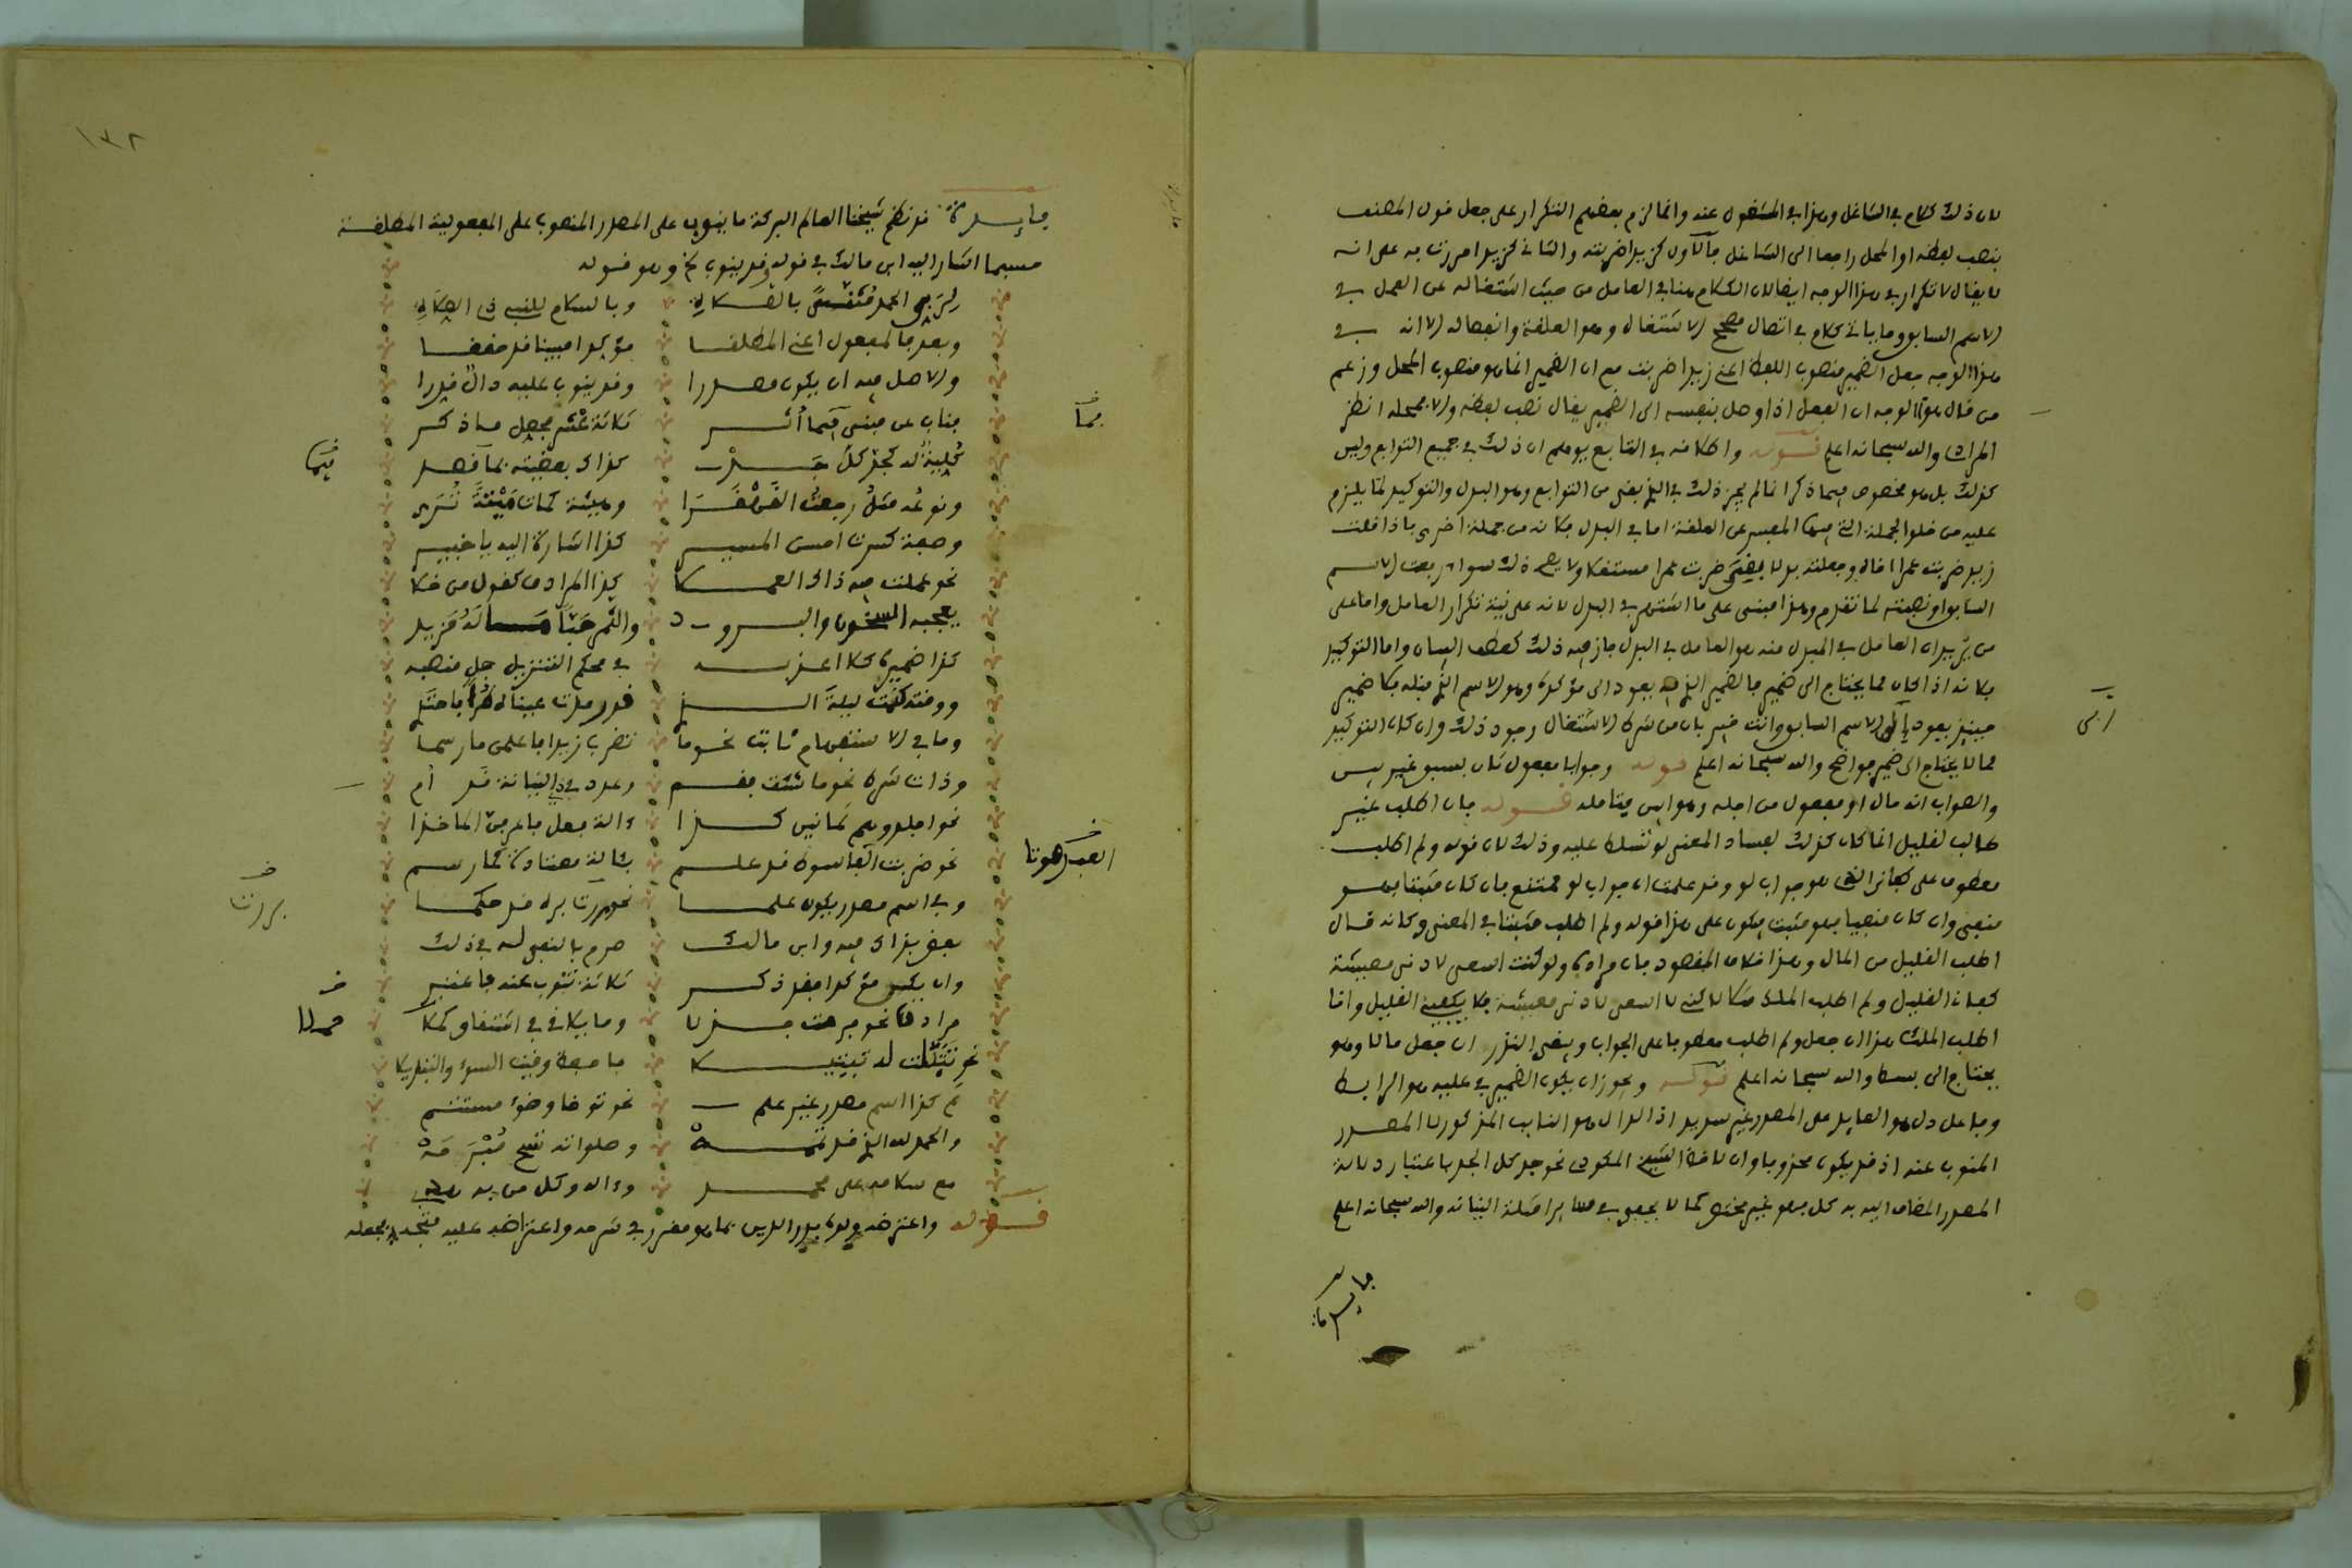 لان ذلك كلام في الشاغل وهذا في المشغول عنه وانما لزم بعضهم التكرار على جعل قول المصنف
بنصب لفظه او المحل راجعا الى الشاغل فالاول كزيدا ضربته والثاني كزيدا مررت به على انه
لا يقال لا تكرار في هذا الوجه ايضا لان الكلام هنا في العامل من حيث اشتغاله عن العمل في
الاسم السابق وما ياتي كلام في اتصال مصحح الاشتغال وهو العلقة وانفصاله الا انه في
هذا الوجه جعل الضمير منصوب اللفظ اعني زيدا ضربت مع ان الضمير انما هو منصوب المحل وزعم
من قال هذا الوجه ان الفعل اذا وصل بنفسه الى الضمير يقال نصب لفظه والا فمحله انظر
المرادي والله سبحانه اعلم قوله واطلاقه في التابع يوهم ان ذلك في جميع التوابع وليس
كذلك بل هو مخصوص بما ذكر انما لم يجز ذلك في الذي بقي من التوابع وهو البدل والتوكيد لما يلزم
عليه من خلو الجملة التي فيها المفسر عن العلقة اما في البدل فكانه من جملة اخرى فاذا قلت
زيد ضربت عمرا اخاه وجعلته بدلا بقي ضربت عمرا مستقلا ولا يصح ذلك سواء رفعت الاسم
السابق او نصبته لما تقدم وهذا مبني على ما اشتهر في البدل لانه على نية تكرار العامل واما على
من يرى ان العامل في المبدل منه هو العامل في البدل جاز فيه ذلك كعطف البيان واما التوكيد
فكانه اذا كان مما يحتاج الى ضمير فالضمير الذي فيه يعود الى مؤكده وهو الاسم الذي قبله فلا ضمير
حينئذ يعود الى الاسم السابق وانت خبير بان من شرط الاشتغال وجود ذلك وان كان التوكيد
مما لا يحتاج الى ضمير فواضح والله سبحانه اعلم قوله وجوابا مفعول ثان بسبق غير بين
والصواب انه حال او مفعول من اجله وهو ابين فتامله قوله فان اطلب غير
طالب لقليل انما كان كذلك لفساد المعنى لو تسلط عليه وذلك لان قوله ولم اطلب
معطوف على كفاني الذي هو جواب لو وقد علمت ان جواب لو ممتنع فان كان مثبتا فهو
منفي وان كان منفيا فهو مثبت فيكون على هذا قوله ولم اطلب مثبتا في المعنى وكانه قال
اطلب القليل من المال وهذا خلاف المقصود فان مراده ولو كنت اسعى لادنى معيشة
كفاني القليل ولم اطلب الملك لاكني لا اسعى لادنى معيشة فلا يكفيني القليل وانا
اطلب الملك هذا ان جعل ولم اطلب معطوفا على الجواب وبقي النظر ان جعل حالا وهو
يحتاج الى بسط والله سبحانه اعلم قوله ويجوز ان يكون الضمير في عليه هو الرابط
وفاعل دل هو العايد على المصدر غير سديد اذ الدال هو النايب المذكور لا المصدر
المنوب عنه اذ قد يكون محذوفا وان لاحظ الشيخ المكودي نحو جد كل الجد باعتبار دلالة
المصدر المضاف اليه به كل فهو غير مختص كما لا يخفى في سائر امثلة النيابة والله سبحانه اعلم
فايدة
١٣٢
فايدة قد نظم شيخنا العالم البركة ما ينوب على المصدر المنصوب على المفعولية المطلقة
حسبما اشار اليه ابن مالك في قوله وقد ينوب الخ وهو قوله
لربي الحمد وبالسلام للنبي
وبعد فالمفعول اعني المطلقا مؤكدا مبينا قد حققا
والاصل فيه ان يكون مصدرا وقد ينوب عليه دال قدرا
فناب عن مبني فيما أثر ثلاثة عشر فجعل ما ذكر
كلية له كجد كل جد كذاك بعضيته بما قصد
ونوعه مثل رجعت القهقرا وهيئة كمات ميتة ترى
وصفة كسرت احسن المسير كذا اشارة اليه يا خبير
نحو عملت فيه ذاك العملا كذا المرادف كقول من خلا
يعجبه السخون والبرود والتمر حبا ما له مزيد
كذا ضميره كلا اعذبه في محكم التنزيل جل منصبه
ووقته كنمت ليلة
وما في الاستفهام ثابت نحو ما تضرب زيدا فاعلمن ما رسما
وذات شرط نحو ما شئت فقم وعدد في ذي النيابة قد أم
نحو اجلدوهم ثمانين كذا ءالة فعل فاعرفن الماخذا
نحو ضربت العبد سوطا قد علم بئالة معتادة كما رسم
وفي اسم مصدر يكون علما نحو بررت برة قد حكما
بعض بذاك فيه وابن مالك صرح بالنقول في ذلك
وان يكن مؤكدا فقد ذكر ثلاثة تنوب عنه فاعتبر
مرادفا نحو فرحت جذلا وما يلاقي في اشتقاق كملا
نحو تبتلت له تبتيلا فاحفظ وقيت السوء والتنكيلا
ثم كذا اسم مصدر غير علم نحو توضا وضوء مستتم
والحمد لله الذي قد تممه وصلواته تتيح مبرمه
مع سلامه على محمد وءاله وكل من به
قوله واعترضه ولده بدر الدين بما هو مقرر في شرحه واعتراضه عليه متجه فجعله